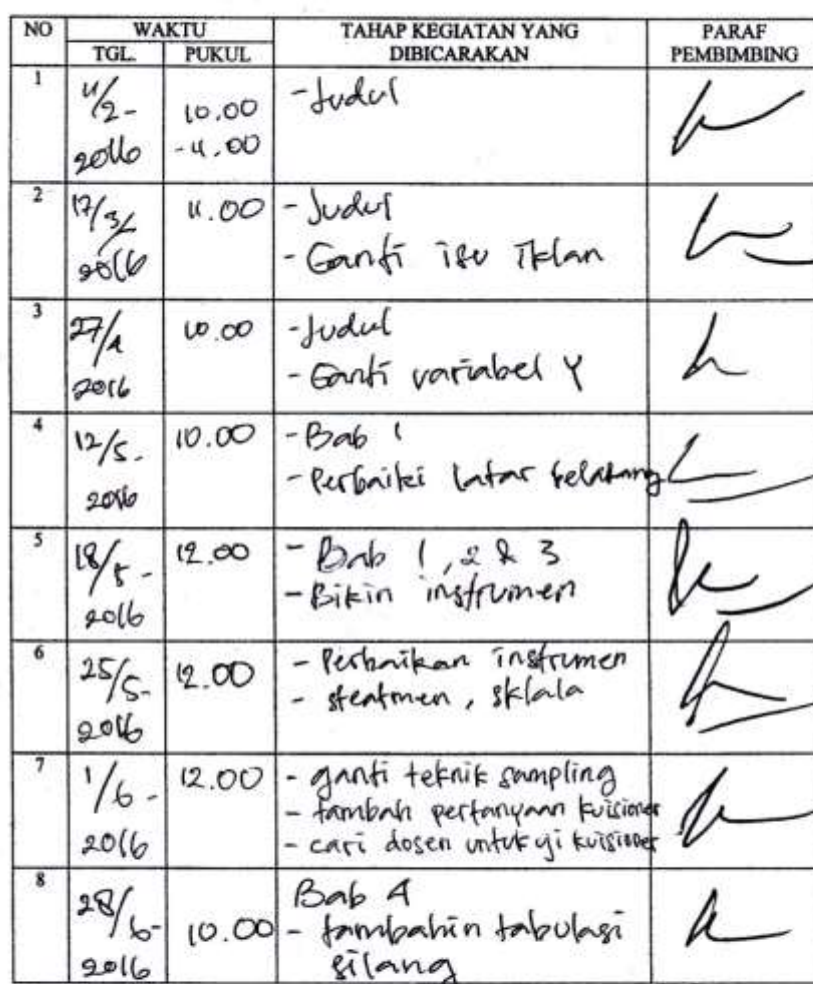 NO WAKTU TAHAP KEGIATAN YANG DIBICARAKAN PARAF PEMBIMBING
TGL. PUKUL
1 11/2- 2016 10.00 -11.00 - Judul
2 17/3/ 2016 11.00 - Judul
- Ganti isu iklan
3 27/4 2016 10.00 - Judul
- Ganti variabel Y
4 12/5- 2016 10.00 - Bab 1
- Perbaiki latar belakang
5 18/5- 2016 12.00 - Bab 1, 2 & 3
- Bikin instrumen
6 25/5- 2016 12.00 - Perbaikan instrumen
- steatmen, sklala
7 1/6- 2016 12.00 - ganti teknik sampling
- tambah pertanyaan kuisioner
- cari dosen untuk uji kuisioner
8 28/6- 2016 10.00 Bab 4
- tambahin tabulasi
silang